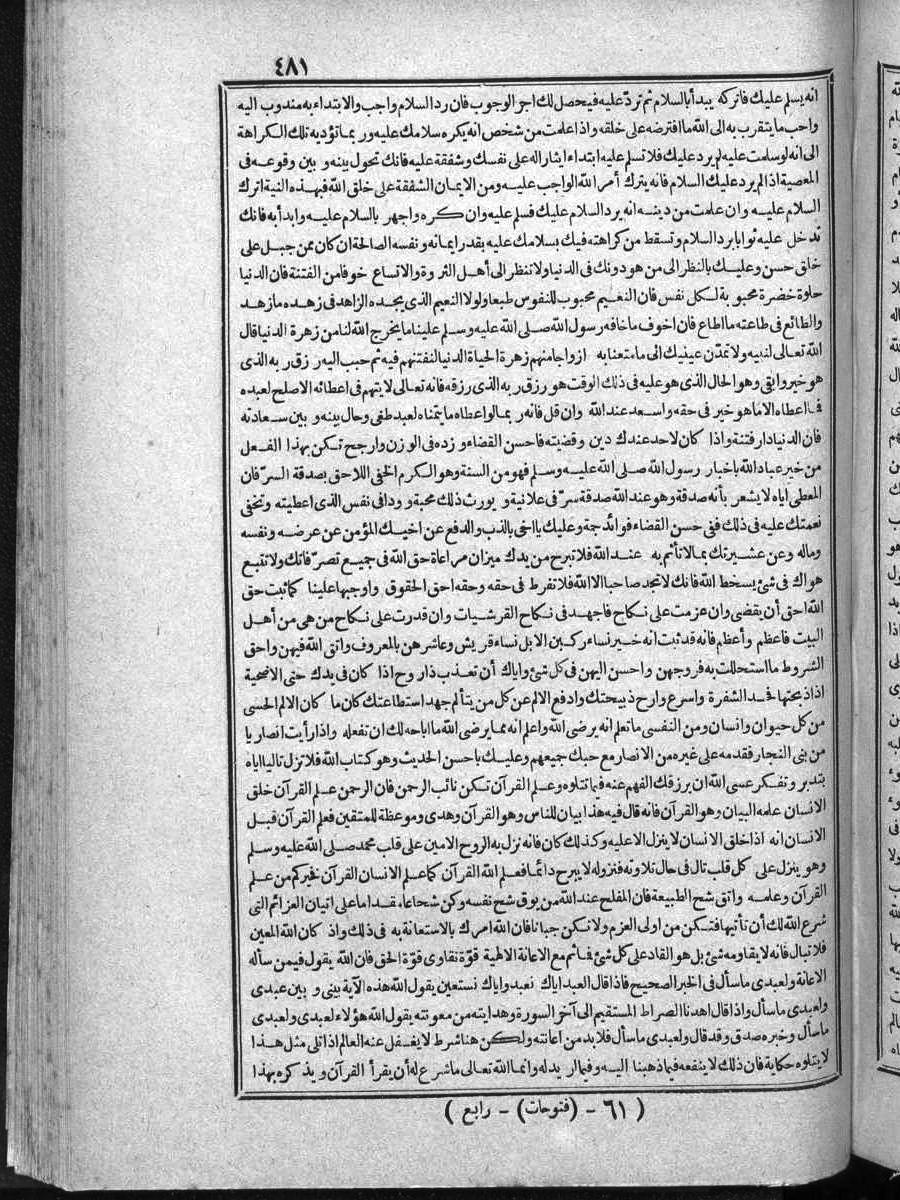 ٤٨١
انه يسلم عليك فاتركه يبدأ بالسلام ثم ترد عليه فيحصل لك اجر الوجوب فان رد السلام واجب والابتداء به مندوب اليه
واحب ما يتقرب به الى الله ما افترضه على خلقه واذا علمت من شخص انه يكره سلامك عليه وربما تؤديه تلك الكراهة
الى انه لو سلمت عليه لم يرد عليك فلا تسلم عليه ابتداء ايثارا له على نفسك وشفقة عليه فانك تحول بينه وبين وقوعه فى
المعصية اذا لم يرد عليك السلام فانه يترك أمر الله الواجب عليه ومن الايمان الشفقة على خلق الله فبهذه النية اترك
السلام عليه وان علمت من دينه انه يرد السلام عليك فسلم عليه وان كره واجهر بالسلام عليه وابدأ به فانك
تدخل عليه ثوابا برد السلام وتسقط من كراهته فيك بسلامك عليه بقدر ايمانه ونفسه الصالحة ان كان ممن جبل على
خلق حسن وعليك بالنظر الى من هو دونك فى الدنيا ولا تنظر الى أهل الثروة والاتساع خوفا من الفتنة فان الدنيا
حلوة خضرة محبوبة لكل نفس فان النعيم محبوب للنفوس طبعا ولولا النعيم الذى يجده الزاهد فى زهده ما زهد
والطائع فى طاعته ما اطاع فان اخوف ما خافه رسول الله صلى الله عليه وسلم علينا ما يخرج الله لنا من زهرة الدنيا قال
الله تعالى لنبيه ولا تمدّن عينيك الى ما متعنا به ازواجا منهم زهرة الحياة الدنيا لنفتنهم فيه ثم حبب اليه رزق ربه الذى
هو خير وابقى وهو الحال الذى هو عليه فى ذلك الوقت هو رزق ربه الذى رزقه فانه تعالى لا يتهم فى اعطائه الاصلح لعبده
فما اعطاه الا ما هو خير فى حقه واسعد عند الله وان قل فانه ربما لو اعطاه ما يتمناه لعبد طغى وحال بينه وبين سعادته
فان الدنيا دار فتنة واذا كان لاحد عندك دين وقضيته فاحسن القضاء وزده فى الوزن وارجح تكن بهذا الفعل
من خير عباد الله باخبار رسول الله صلى الله عليه وسلم فهو من السنة وهو الكرم الخفى اللاحق بصدقة السر فان
المعطى اياه لا يشعر بأنه صدقة وهو عند الله صدقة سر فى علانية ويورث ذلك محبة وودا فى نفس الذى اعطيته وتخفى
نعمتك عليه فى ذلك ففى حسن القضاء فوائد جمة وعليك يا اخى بالذب والدفع عن اخيك المؤمن عن عرضه ونفسه
وماله وعن عشيرتك بما لا تأثم به عند الله فلا تبرح من يدك ميزان مراعاة حق الله فى جميع تصرفاتك ولا تتبع
هواك فى شئ يسخط الله فانك لا تجد صاحبا الا الله فلا تفرط فى حقه وحقه احق الحقوق واوجبها علينا كما ثبت حق
الله احق أن يقضى وان عزمت على نكاح فاجهد فى نكاح القرشيات وان قدرت على نكاح من هى من أهل
البيت فاعظم وأعظم فانه قد ثبت انه خير نساء ركبن الابل نساء قريش وعاشرهن بالمعروف واتق الله فيهن واحق
الشروط ما استحللت به فروجهن واحسن اليهن فى كل شئ واياك أن تعذب ذا روح اذا كان فى يدك حتى الاضحية
اذا ذبحتها فحد الشفرة واسرع وارح ذبيحتك وادفع الالم عن كل من يتألم جهد استطاعتك كان ما كان الالم الحسى
من كل حيوان وانسان ومن النفسى ما تعلم انه يرضى الله واعلم انه مما يرضى الله ما اباحه لك ان تفعله واذا رأيت انصاريا
من بنى النجار فقدمه على غيره من الانصار مع حبك جميعهم وعليك باحسن الحديث وهو كتاب الله فلا تزل تاليا اياه
بتدبر وتفكر عسى الله ان يرزقك الفهم عنه فيما تتلوه وعلم القرآن تكن نائب الرحمن فان الرحمن علم القرآن خلق
الانسان علمه البيان وهو القرآن فانه قال فيه هذا بيان للناس وهو القرآن وهدى وموعظة للمتقين فعلم القرآن قبل
الانسان انه اذا خلق الانسان لا ينزل الا عليه وكذلك كان فانه نزل به الروح الامين على قلب محمد صلى الله عليه وسلم
وهو ينزل على كل قلب تال فى حال تلاوته فنزوله لا يبرح دائما فعلم الله القرآن كما علم الانسان القرآن فخيركم من علم
القرآن وعلمه واتق شح الطبيعة فان المفلح عند الله من يوق شح نفسه وكن شجاعا مقداما على اتيان العزائم التى
شرع الله لك أن تأتيها فتكن من اولى العزم ولا تكن جبانا فان الله امرك بالاستعانة به فى ذلك واذ كان الله المعين
فلا تبال فانه لا يقاومه شئ بل هو القادر على كل شئ فما ثم مع الاعانة الالهية قوة تقاوى قوة الحق فان الله يقول فيمن سأله
الاعانة ولعبدى ما سأل فى الخبر الصحيح فاذا قال العبد اياك نعبد واياك نستعين يقول الله هذه الآية بينى وبين عبدى
ولعبدى ما سأل واذا قال اهدنا الصراط المستقيم الى آخر السورة وهدايته من معونته يقول الله هؤلاء لعبدى ولعبدى
ما سأل وخبره صدق وقد قال ولعبدى ما سأل فلا بد من اعانته ولكن هنا شرط لا يغفل عنه العالم اذا تلى مثل هذا
لا يتلوه حكاية فان ذلك لا ينفعه فيما ذهبنا اليه وفيما اريد له وانما الله تعالى ما شرع له أن يقرأ القرآن ويذكره بهذا
( ٦١ - (فتوحات) - رابع )